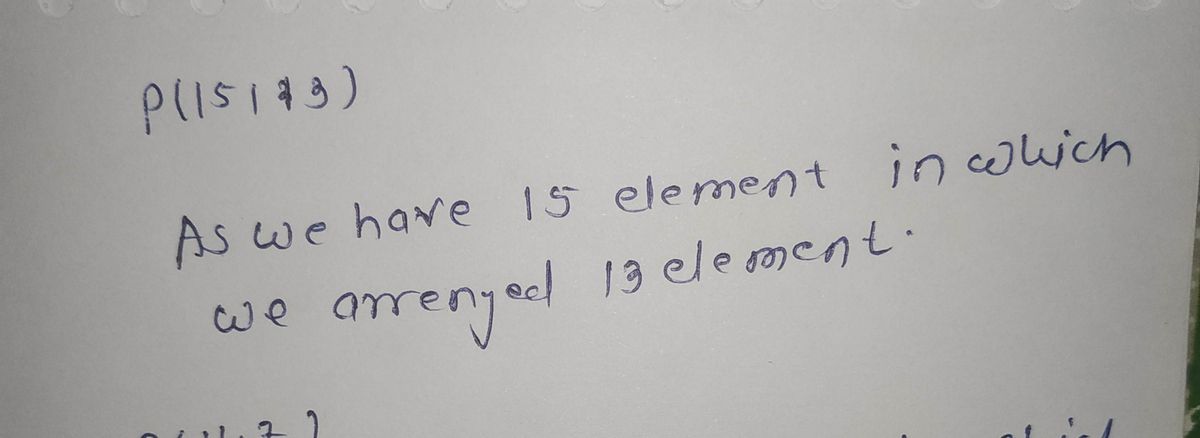 P(15,13)
As we have 15 element in which
we arrenged 13 element.